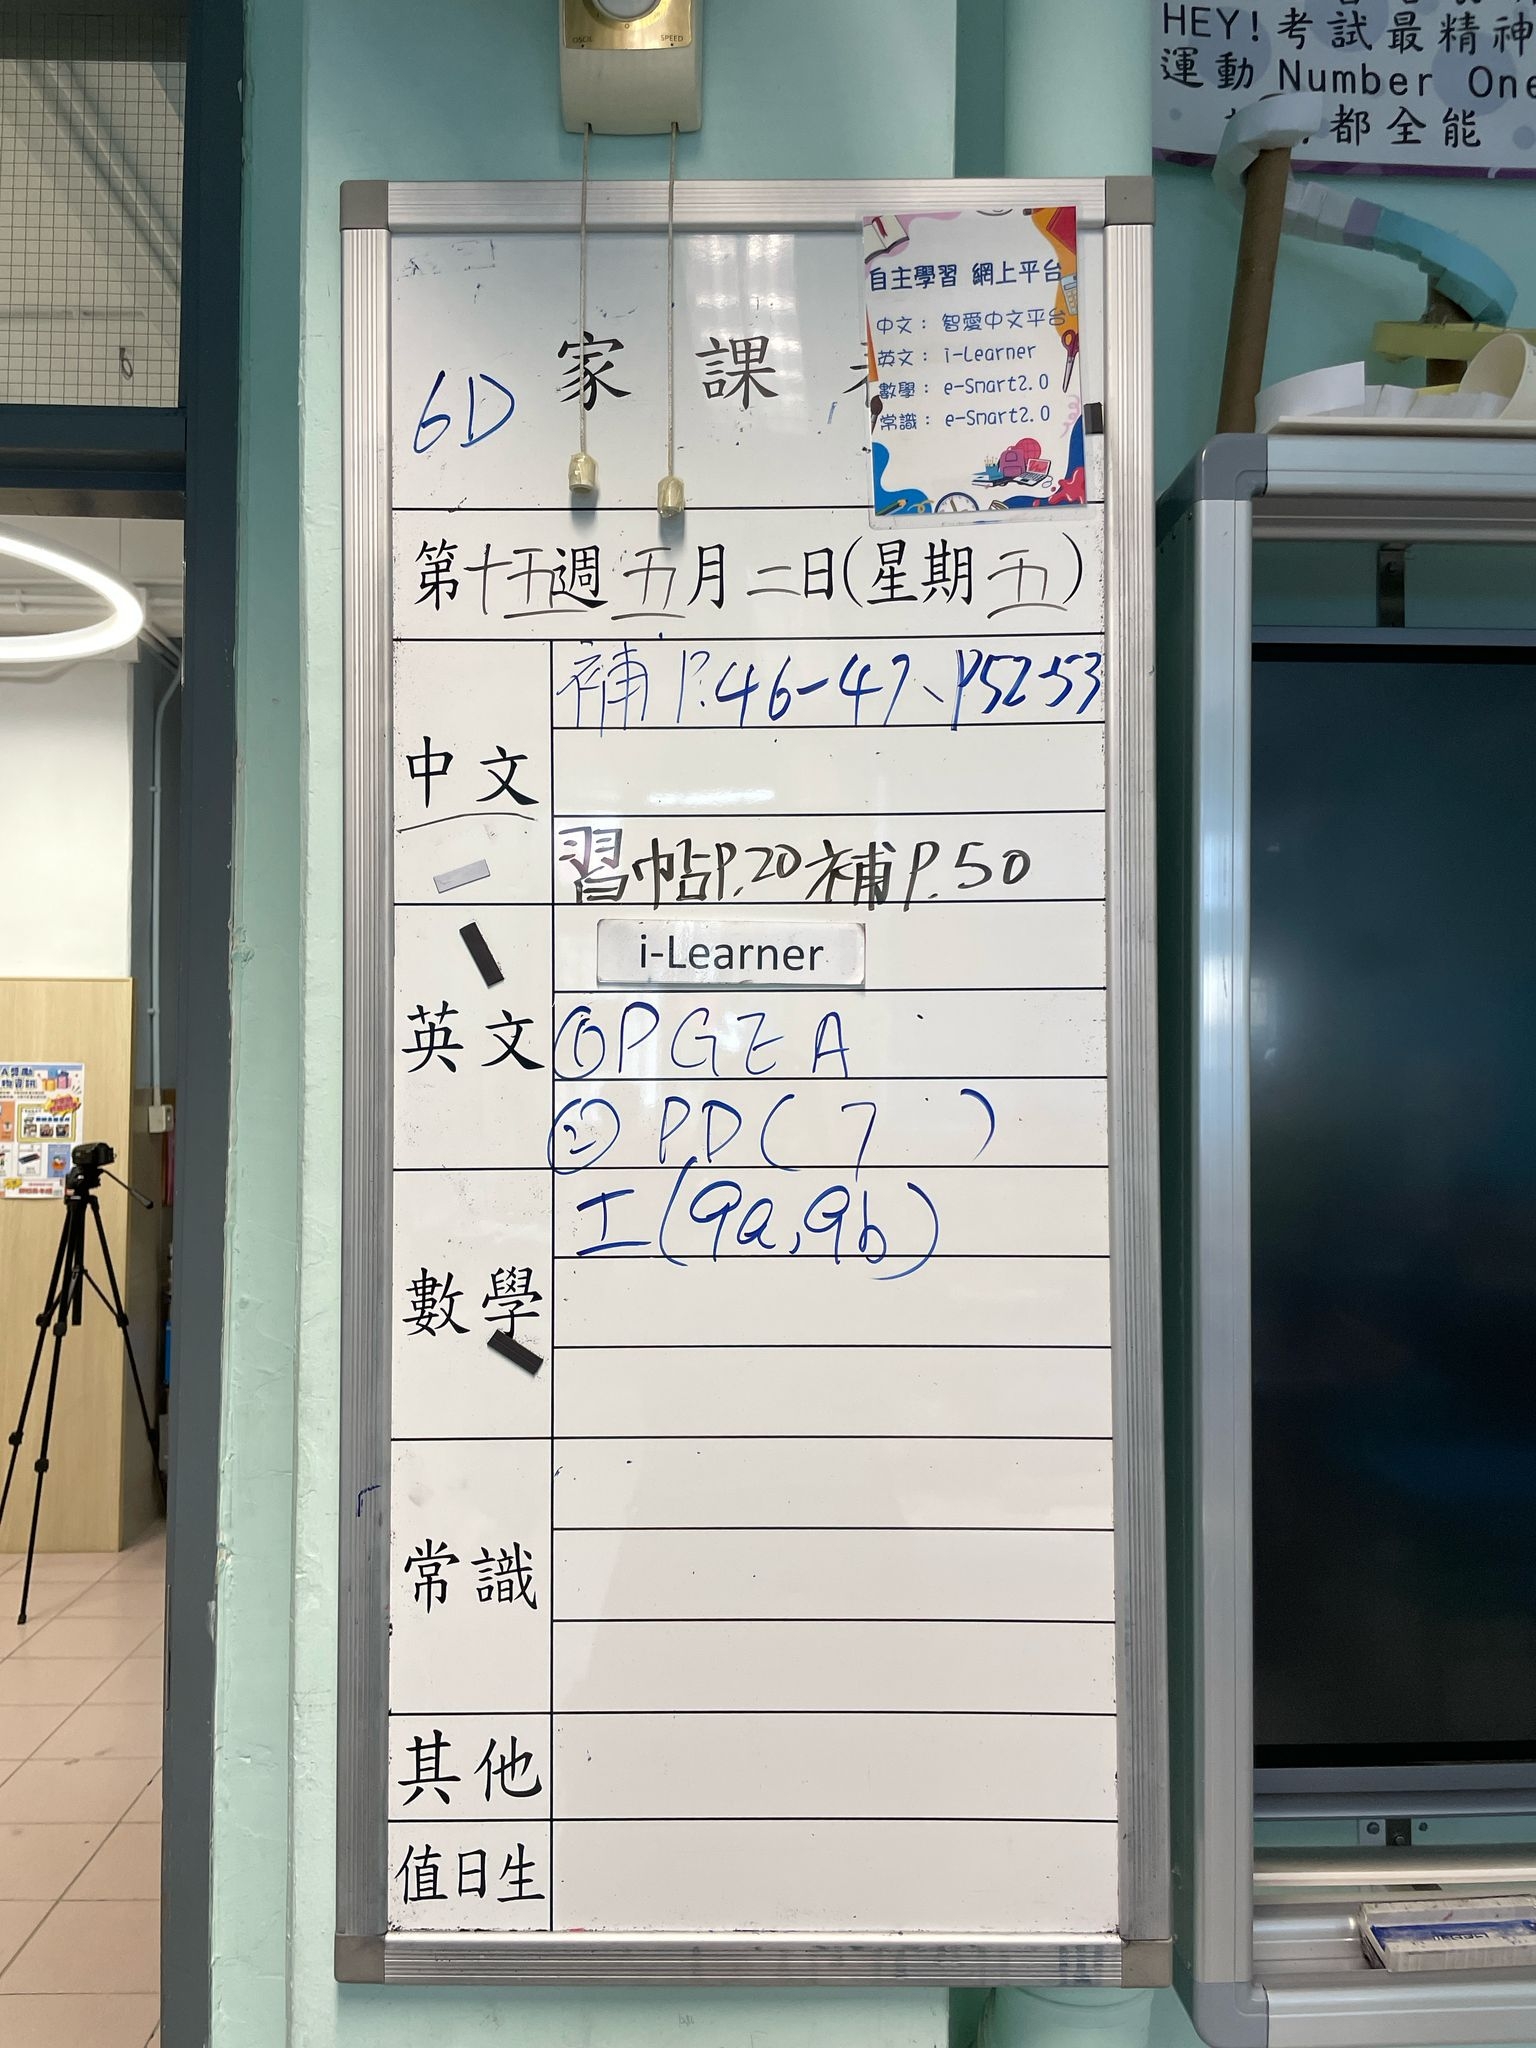 OSCIL SPEED
HEY!考試最精神
運動 Number One
都全能
自主學習 網上平台
中文： 智愛中文平台
英文： i-Learner
數學： e-Smart2.0
常識： e-Smart2.0
6D 家課
第十五週五月二日(星期五)
中文
補 P.46-47、P52-53
習帖P.20補P.50
英文
i-Learner
①PGEA
② PD( 7 )
數學
工(9a,9b)
常識
其他
值日生